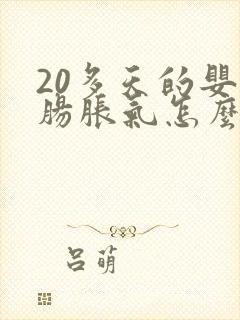 20多天的嬰
腸脹氣怎麼
呂萌